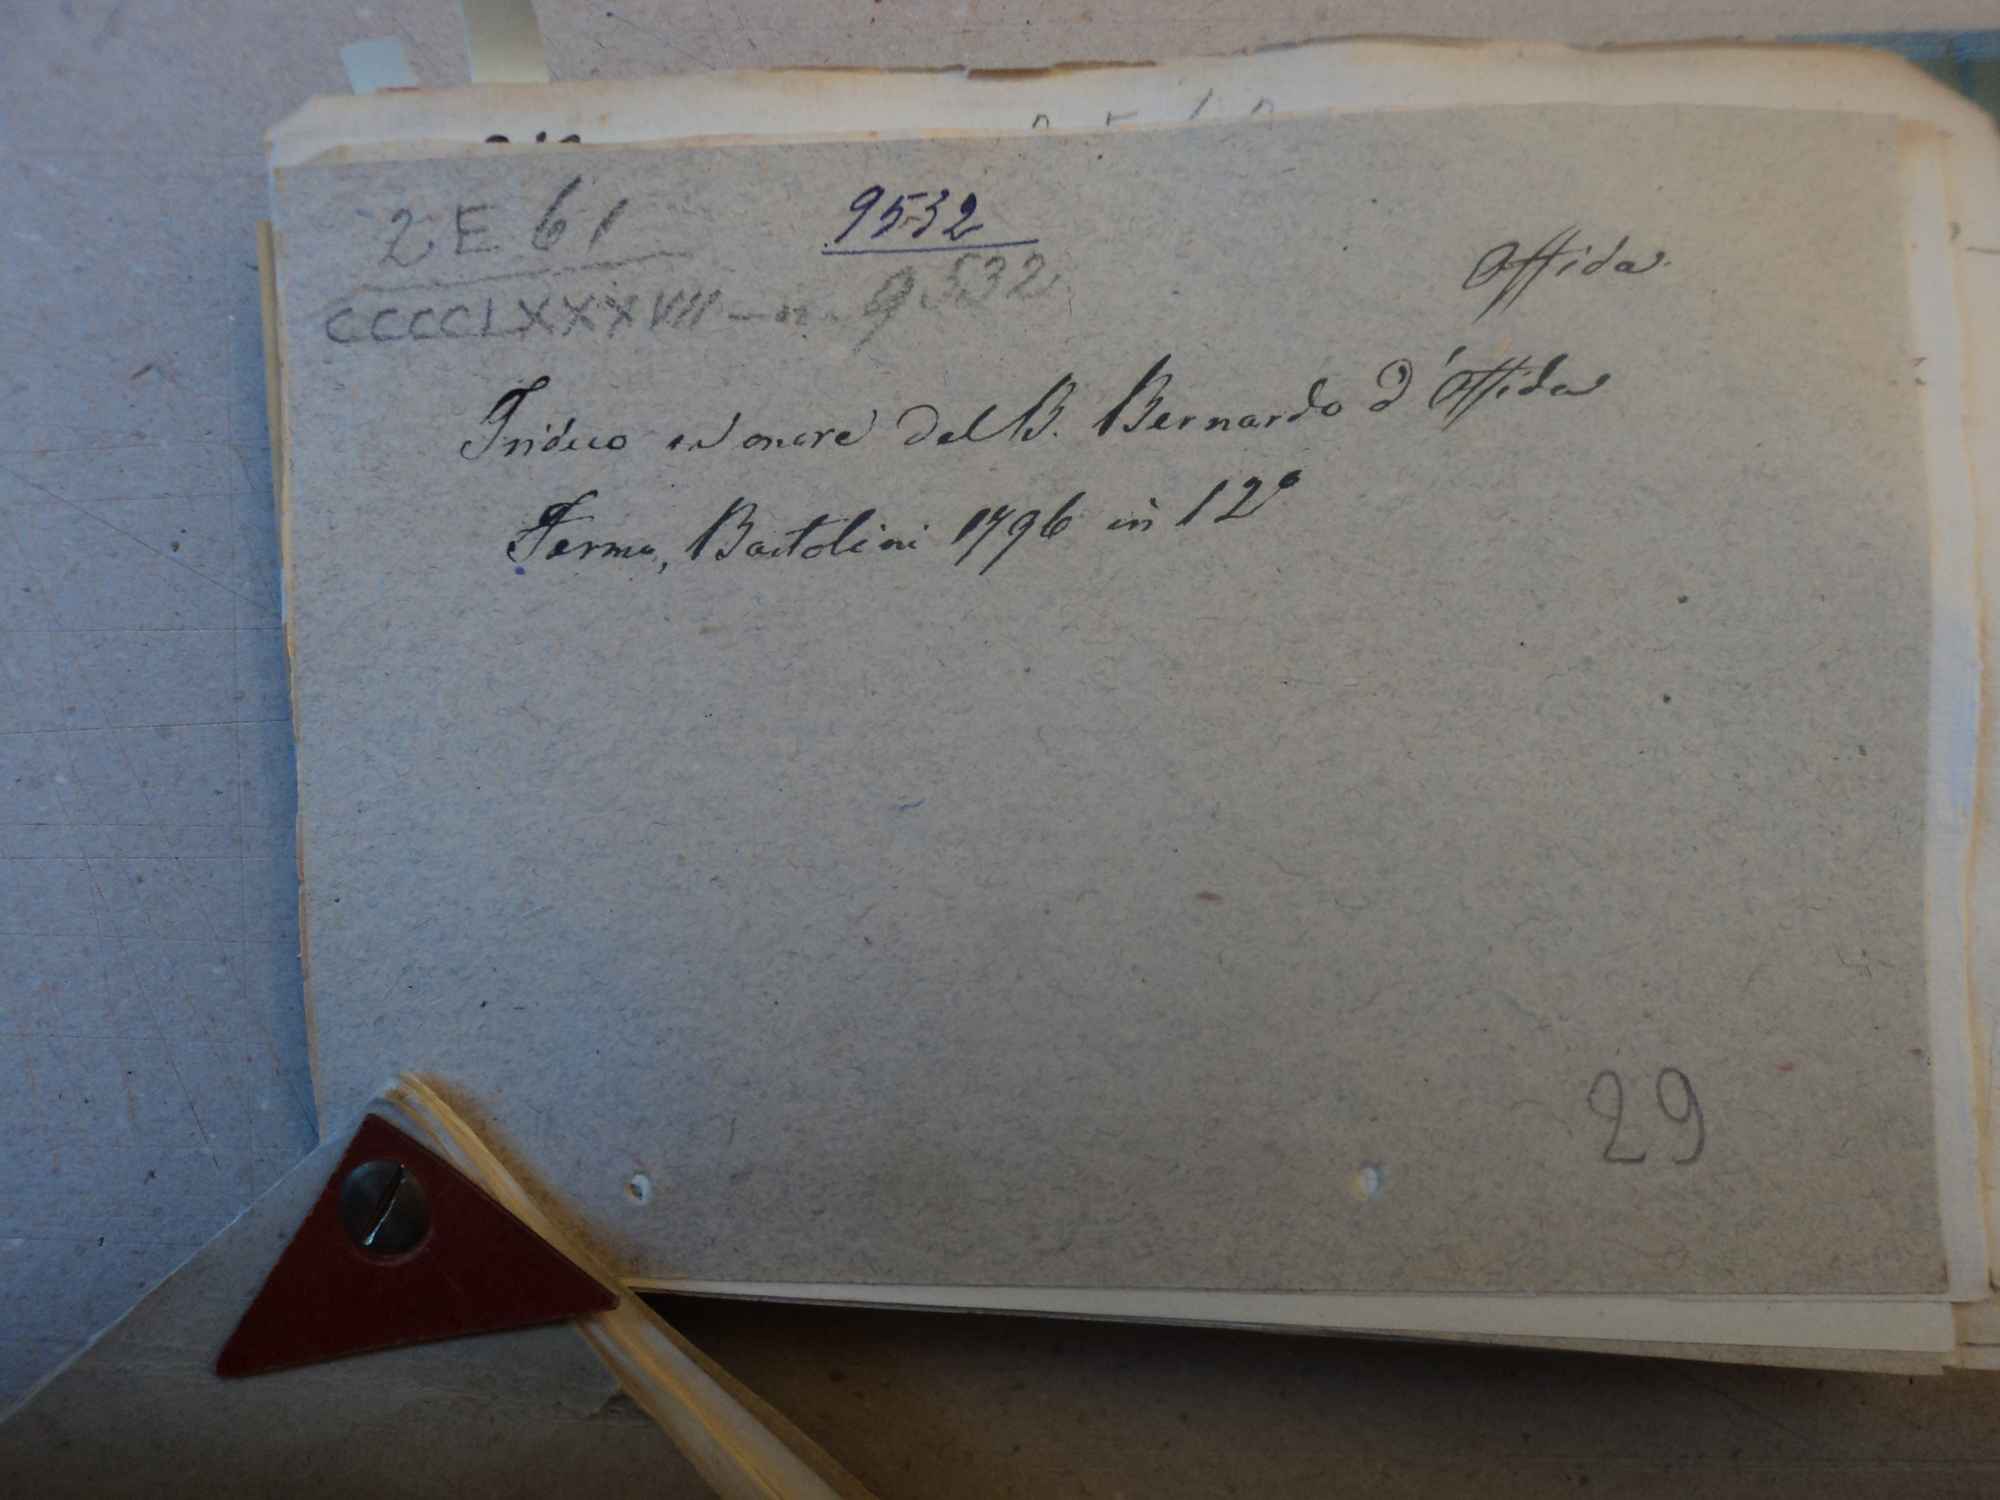 2 E 61
9532
CCCCLXXXVII - n. 9532
Offida
Triduo ad onore del B. Bernardo d'Offida
Fermo, Bartolini 1796 in 12°
29